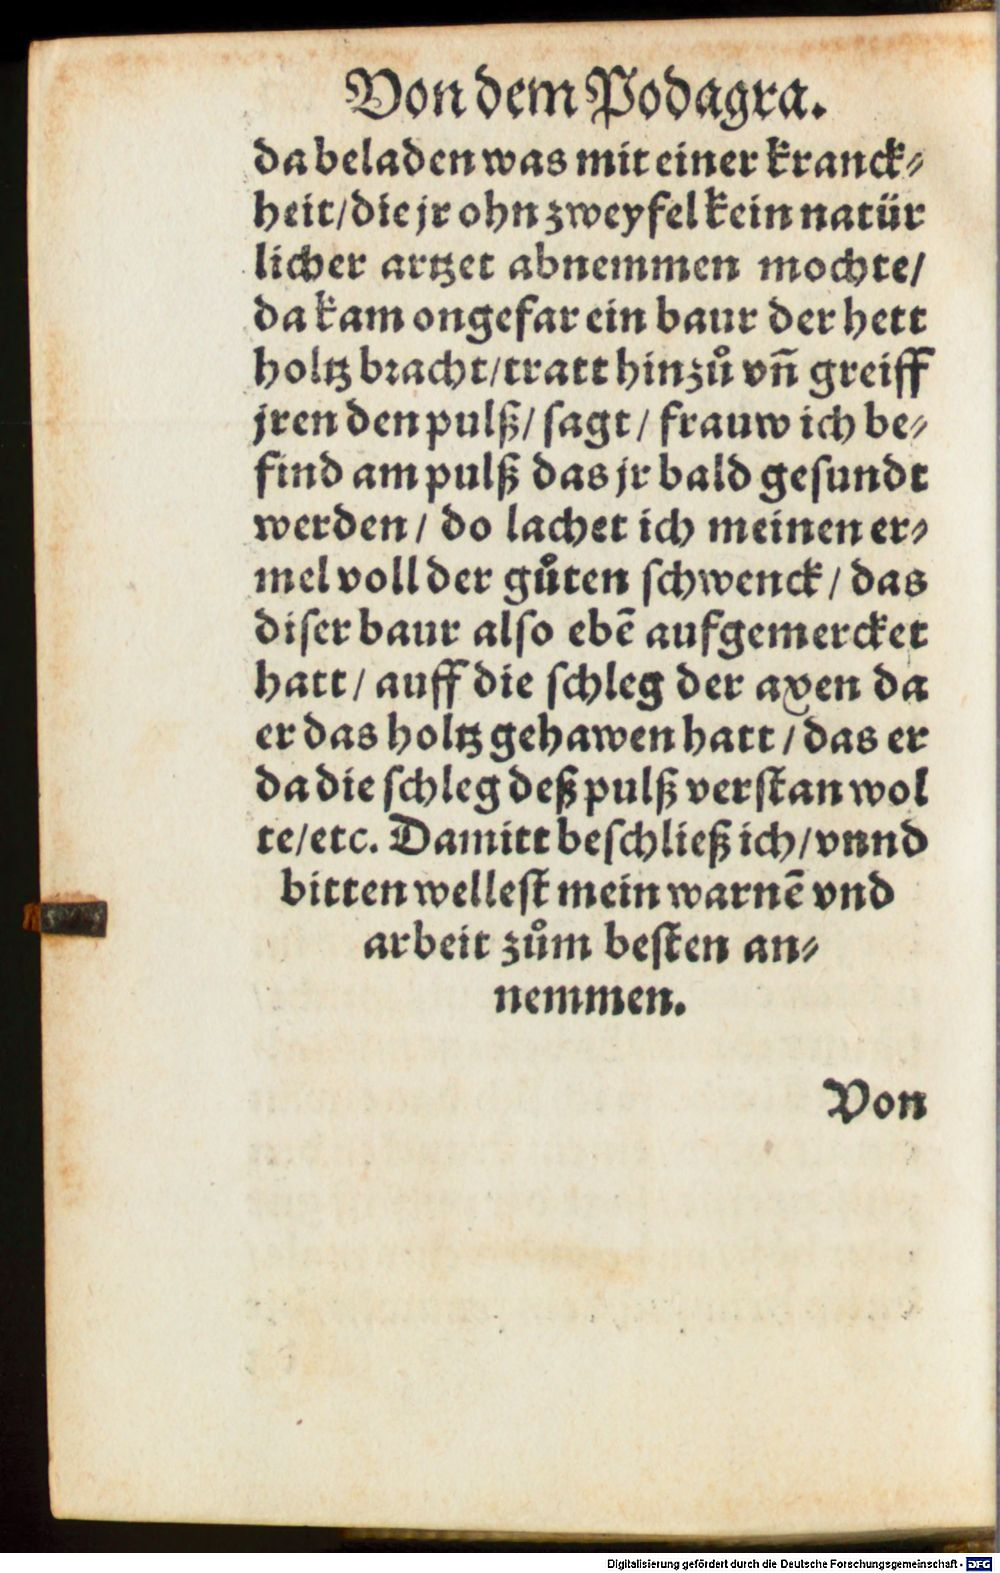 Von dem Podagra.
da beladen was mit einer kranck⸗
heit/die jr ohn zweyfel kein natür
licher artzet abnemmen mochte/
da kam ongefar ein baur der hett
holtz bꝛacht/tratt hinzuͦ vñ greiff
jren den pulß/ ſagt/ frauw ich be⸗
find am pulß das jr bald geſundt
werden/ do lachet ich meinen er⸗
mel voll der guͦten ſchwenck/ das
diſer baur alſo ebē aufgemercket
hatt/ auff die ſchleg der axen da
er das holtz gehawen hatt/ das er
da die ſchleg deß pulß verſtan wol
te/etc. Damitt beſchließ ich/vnnd
bitten welleſt mein warnē vnd
arbeit zuͦm beſten an⸗
nemmen.
Von
Digitalisierung gefördert durch die Deutsche Forschungsgemeinschaft - DFG